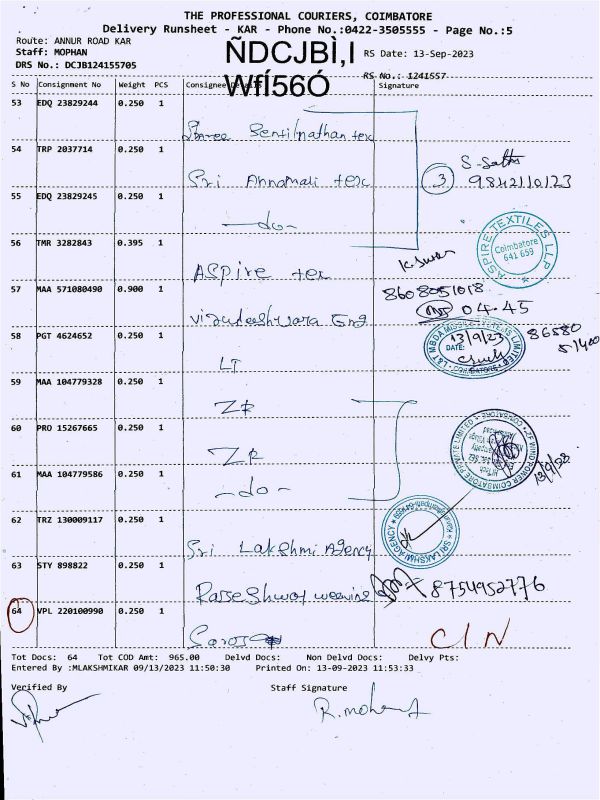 THE PROFESSIONAL COURIERS, COIMBATORE
Delivery Runsheet - KAR - Phone No.:0422-3505555 - Page No.:5
Route: ANNUR ROAD KAR
Staff: MOPHAN
DRS No.: DCJB124155705
ÑDCJBÌ,I
WfÍ56Ó
RS Date: 13-Sep-2023
RS No.: 1241557
S No Consignment No Weight PCS Consignee Details Signature
53 EDQ 23829244 0.250 1
Shree Sentilnathan tex
54 TRP 2037714 0.250 1
Sri Annamali tex
3
9842110123
55 EDQ 23829245 0.250 1
-do-
56 TMR 3282843 0.395 1
ASpire tex
ASPIRE TEXTILES LLP
Coimbatore
641 659
57 MAA 571080490 0.900 1
8608051018
04.45
58 PGT 4624652 0.250 1
LT
13/9/23
DATE:
86580
51400
59 MAA 104779328 0.250 1
ZR
60 PRO 15267665 0.250 1
ZR
61 MAA 104779586 0.250 1
-do-
62 TRZ 130009117 0.250 1
Sri Lakshmi Agency
SRI LAKSHMI AGENCY
63 STY 898822 0.250 1
8754952776
64 VPL 220100990 0.250 1
C/N
Tot Docs: 64 Tot COD Amt: 965.00 Delvd Docs: Non Delvd Docs: Delvy Pts:
Entered By :MLAKSHMIKAR 09/13/2023 11:50:30 Printed On: 13-09-2023 11:53:33
Verified By Staff Signature
R. mohan